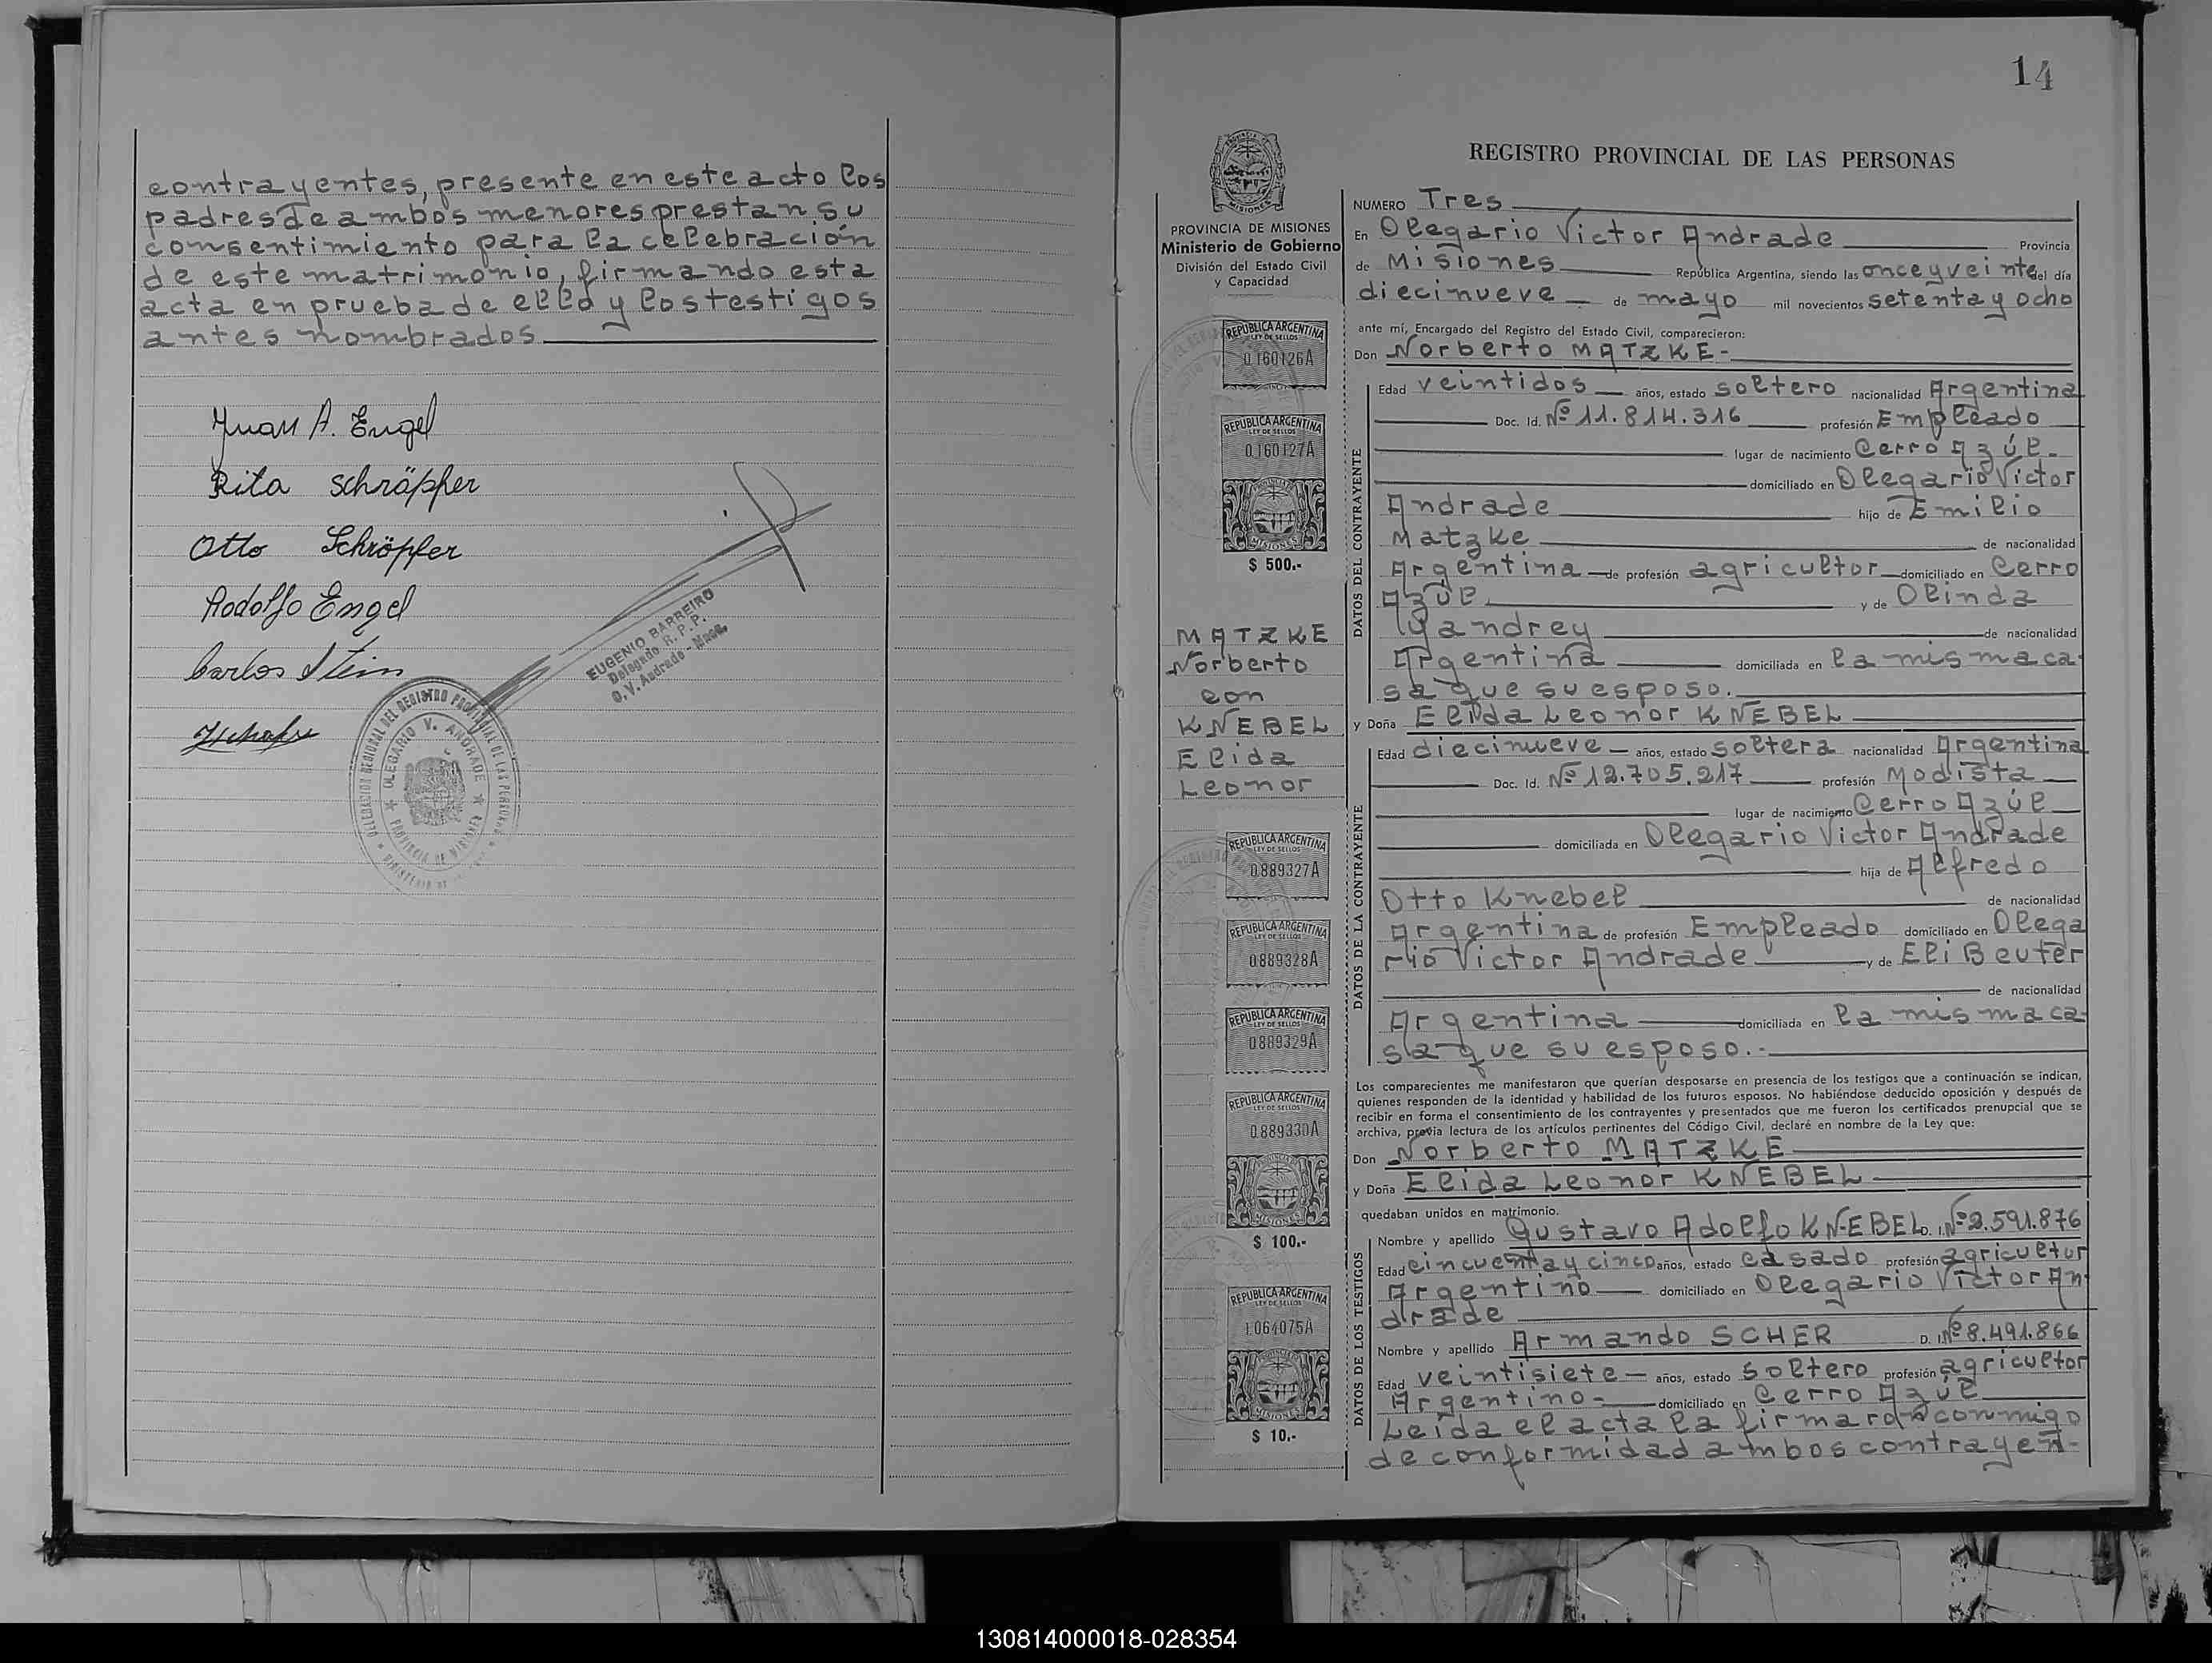 contrayentes, presente en este acto los
padres de ambos menores prestan su
consentimiento para la celebración
de este matrimonio, firmando esta
acta en prueba de ello y los testigos
antes nombrados.
Juan A. Engel
Rita Schröpfer
Otto Schröpfer
Rodolfo Engel
Carlos Stein
EUGENIO BARREIRO
Delegado R. P. P.
O. V. Andrade - Mnes.
DELEGACION REGIONAL DEL REGISTRO PROVINCIAL DE LAS PERSONAS
OLEGARIO V. ANDRADE
PROVINCIA DE MISIONES
14
MISIONES
PROVINCIA DE MISIONES
Ministerio de Gobierno
División del Estado Civil
y Capacidad
REPUBLICA ARGENTINA
LEY DE SELLOS
0.160126A
REPUBLICA ARGENTINA
LEY DE SELLOS
0.160127A
MISIONES
$ 500.-
MATZKE
Norberto
con
KNEBEL
Elida
Leonor
REPUBLICA ARGENTINA
LEY DE SELLOS
0.889327A
REPUBLICA ARGENTINA
LEY DE SELLOS
0.889328A
REPUBLICA ARGENTINA
LEY DE SELLOS
0.889329A
REPUBLICA ARGENTINA
LEY DE SELLOS
0.889330A
MISIONES
$ 100.-
REPUBLICA ARGENTINA
LEY DE SELLOS
1.064075A
MISIONES
$ 10.-
REGISTRO PROVINCIAL DE LAS PERSONAS
NUMERO Tres
En Olegario Victor Andrade Provincia
de Misiones República Argentina, siendo las once y veinte del día
diecinueve de mayo mil novecientos setenta y ocho
ante mí, Encargado del Registro del Estado Civil, comparecieron:
Don Norberto MATZKE-
DATOS DEL CONTRAYENTE
Edad veintidos años, estado soltero nacionalidad Argentina
Doc. Id. Nº 11.814.316 profesión Empleado
lugar de nacimiento Cerro Azúl-
domiciliado en Olegario Victor
Andrade hijo de Emilio
Matzke de nacionalidad
Argentina de profesión agricultor domiciliado en Cerro
Azúl. y de Olinda
Yandrey de nacionalidad
Argentina domiciliada en la misma ca-
sa que su esposo.
y Doña Elida Leonor KNEBEL
DATOS DE LA CONTRAYENTE
Edad diecinueve años, estado soltera nacionalidad Argentina
Doc. Id. Nº 12.705.217 profesión Modista
lugar de nacimiento Cerro Azúl
domiciliada en Olegario Victor Andrade
hija de Alfredo
Otto Knebel de nacionalidad
Argentina de profesión Empleado domiciliado en Olega
rio Victor Andrade y de Eli Beuter
de nacionalidad
Argentina domiciliada en la misma ca-
sa que su esposo.-
Los comparecientes me manifestaron que querían desposarse en presencia de los testigos que a continuación se indican,
quienes responden de la identidad y habilidad de los futuros esposos. No habiéndose deducido oposición y después de
recibir en forma el consentimiento de los contrayentes y presentados que me fueron los certificados prenupcial que se
archiva, previa lectura de los artículos pertinentes del Código Civil, declaré en nombre de la Ley que:
Don Norberto MATZKE
y Doña Elida Leonor KNEBEL
quedaban unidos en matrimonio.
DATOS DE LOS TESTIGOS
Nombre y apellido Gustavo Adolfo KNEBEL D. I. Nº 2.591.876
Edad cincuenta y cinco años, estado casado profesión agricultor
Argentino domiciliado en Olegario Victor An-
drade
Nombre y apellido Armando SCHER D. I. Nº 8.491.866
Edad veintisiete años, estado soltero profesión agricultor
Argentino- domiciliado en Cerro Azúl
Leida el acta la firmaron conmigo
de conformidad ambos contrayen-
130814000018-028354